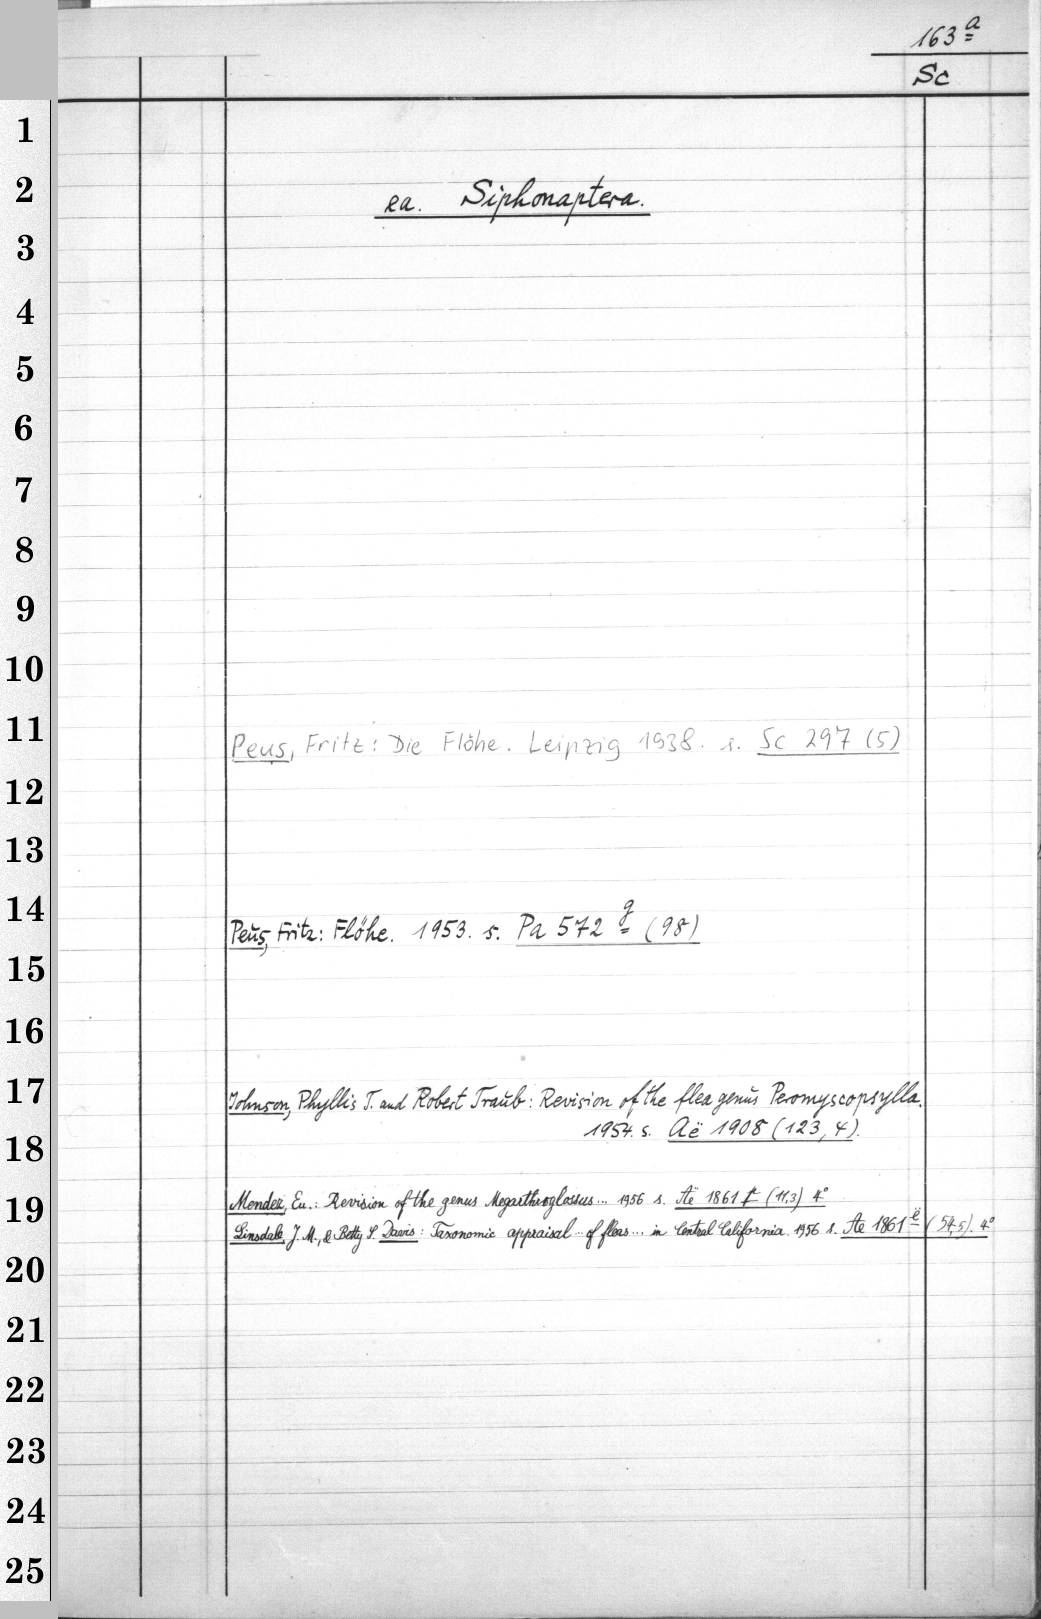 163 a
Sc
1
2
ea. Siphonaptera.
3
4
5
6
7
8
9
10
11
Peus, Fritz: Die Flöhe. Leipzig 1938. s. Sc 297 (5)
12
13
14
Peŭs, Fritz: Flöhe. 1953. s. Pa 572 g (98)
15
16
17
Johnson, Phyllis T. and Robert Traŭb: Revision of the flea genŭs Peromyscopsylla.
1954. s. Aë 1908 (123, 4).
18
19
Mendez, Eu.: Revision of the genus Megarthroglossus... 1956 s. Aë 1861 f (11,3) 4°
Linsdale, J. M., & Betty S. Davis: Taxonomic appraisal ... of fleas ... in Central California. 1956 s. Ae 1861 ë (54,5). 4°
20
21
22
23
24
25